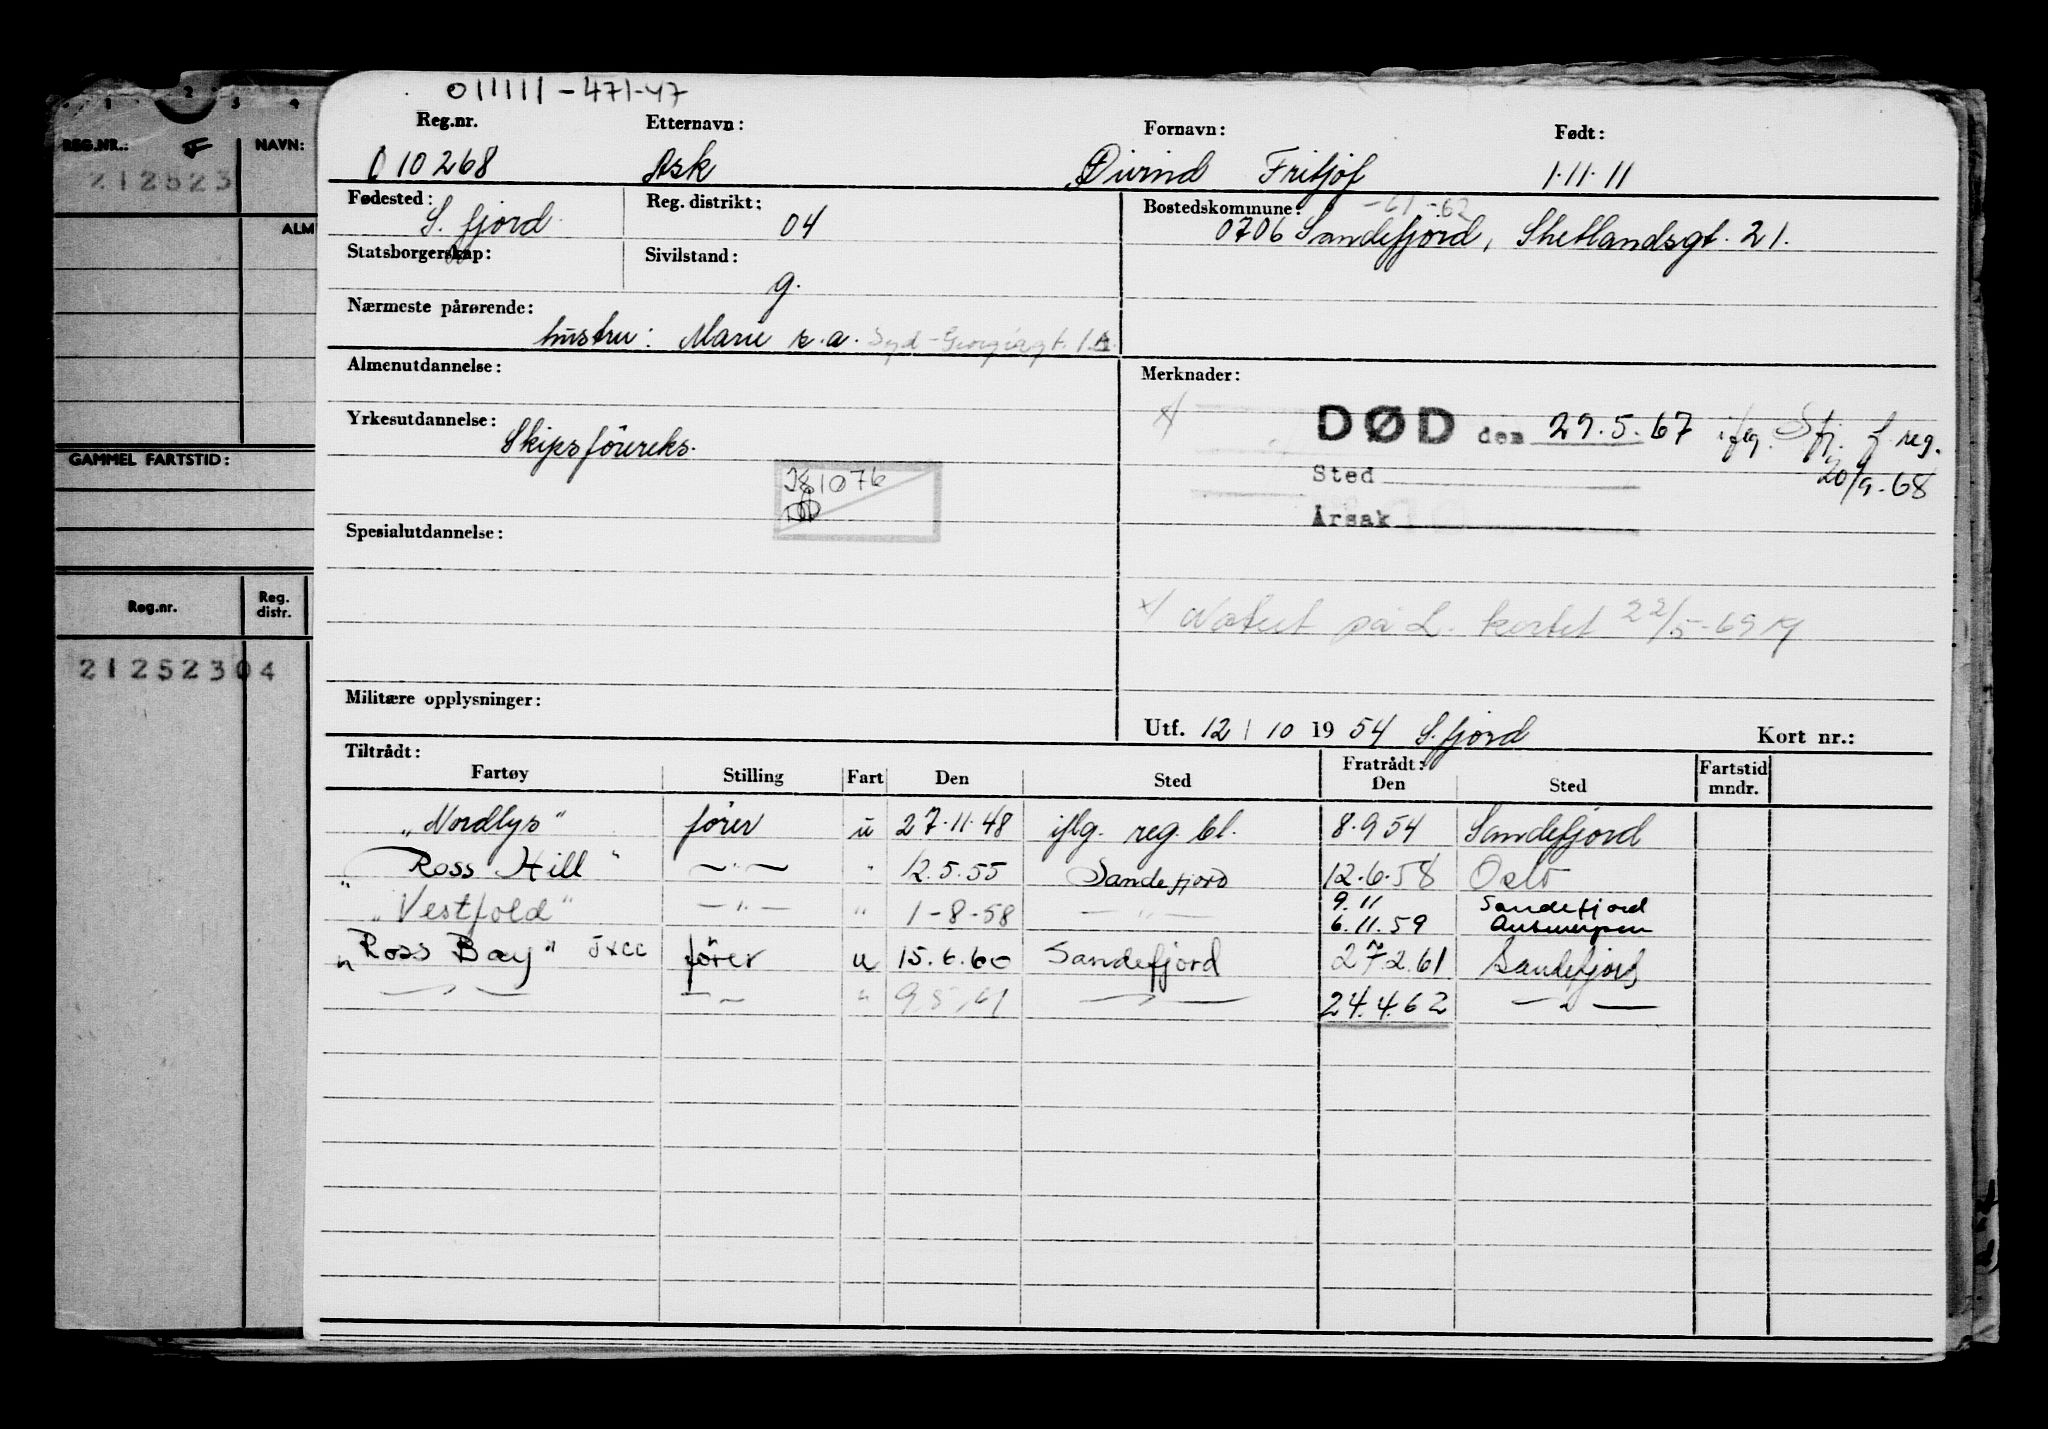 011111-471-47
Reg.nr. Etternavn: Fornavn: Født:
010268 Ask Øivind Fritjof 1.11.11
Fødested: S. fjord Reg. distrikt: 04 Bostedskommune: -61-62
0706 Sandefjord, Shetlandsgt. 21.
Statsborgerskap: Sivilstand: g.
Nærmeste pårørende:
hustru: Marie s.a. Syd-Georgiagt. 1A.
Almenutdannelse: Merknader:
x/ DØD den 29.5.67 iflg. Sfj. f. reg.
20/9-68
Sted
Årsak
Yrkesutdannelse: Skipsförereks.
81076
Spesialutdannelse:
x/ Notert på L. kortet 22/5-69
Militære opplysninger:
Utf. 12/10 1954 S.fjord Kort nr.:
Tiltrådt: Fratrådt: Fartstid
Fartøy Stilling Fart Den Sted Den Sted mndr.
"Nordlys" förer u 27.11.48 iflg. reg. bl. 8.9.54 Sandefjord
"Ross Hill" —"— " 12.5.55 Sandefjord 12.6.58 Oslo
"Vestfold" —"— " 1-8-58 —"— 9.11 Sandefjord
6.11.59 Antwerpen
"Ross Bay" JXCC förer u 15.6.60 Sandefjord 27.2.61 Sandefjord
—"— —"— " 9.5.61 —"— 24.4.62 —"—
1 2 3 4
REG.NR.: F NAVN:
212523
ALM
GAMMEL FARTSTID:
Reg.nr. Reg. distr.
21252304